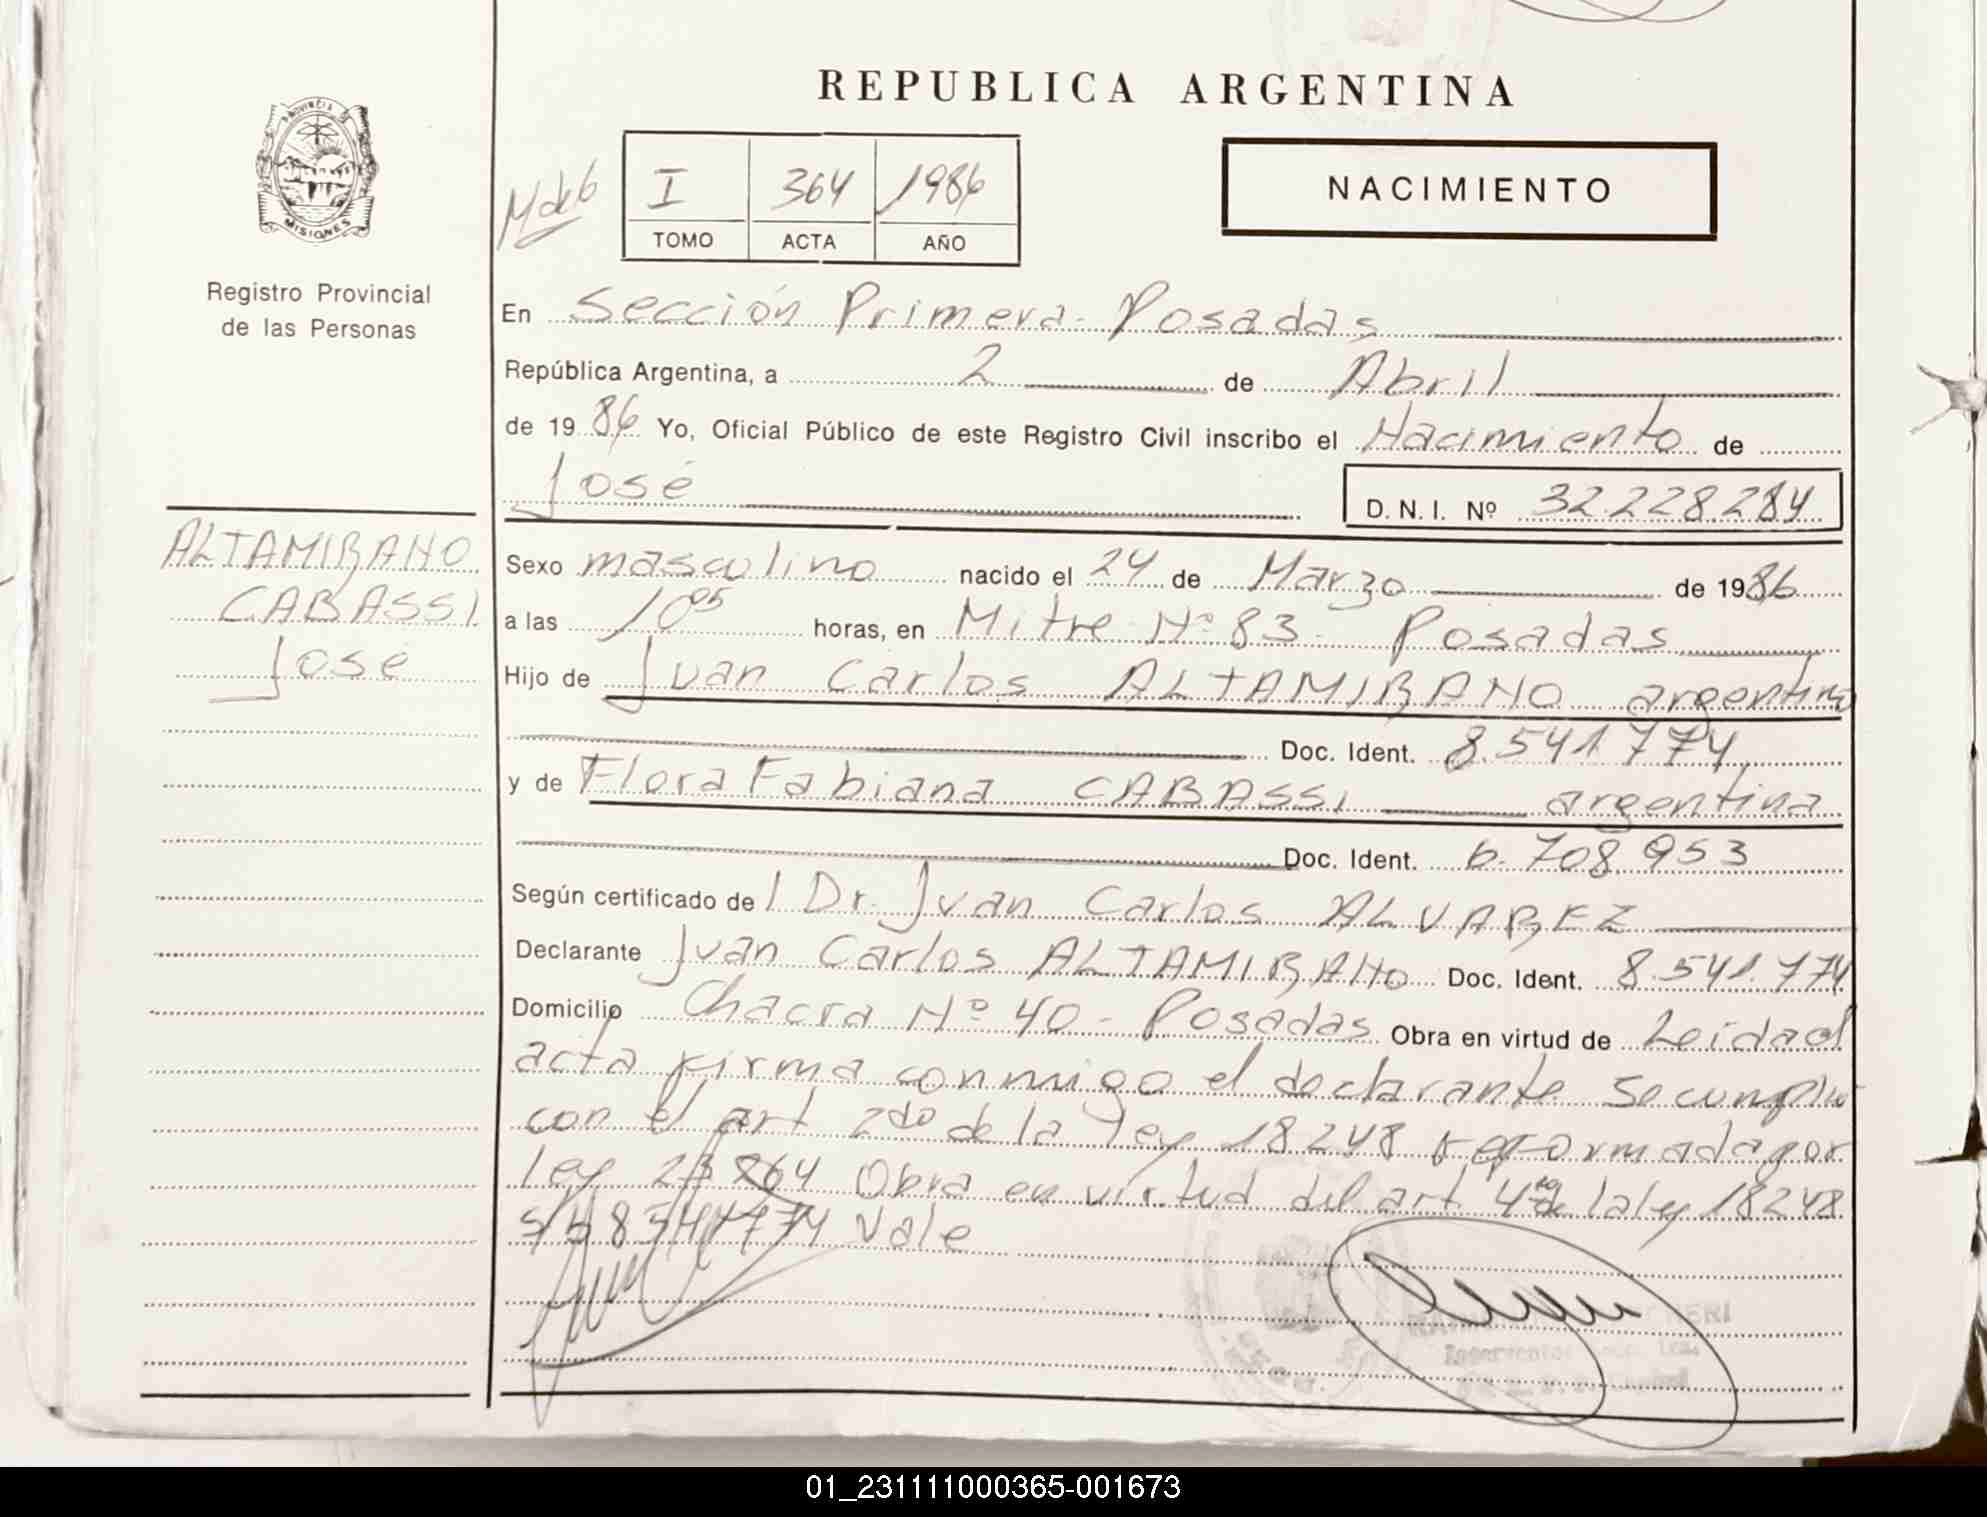 REPUBLICA ARGENTINA
PROVINCIA DE
MISIONES
Registro Provincial
de las Personas
I 364 1986
TOMO ACTA AÑO
NACIMIENTO
En Sección Primera - Posadas
República Argentina, a 2 de Abril
de 1986 Yo, Oficial Público de este Registro Civil inscribo el Nacimiento de
José D. N. I. Nº 32.228.284
ALTAMIRANO
CABASSI
José
Sexo masculino nacido el 24 de Marzo de 1986
a las 10 05 horas, en Mitre Nº 83 - Posadas
Hijo de Juan Carlos ALTAMIRANO argentino
Doc. Ident. 8.541.774
y de Flora Fabiana CABASSI argentina
Doc. Ident. 6.708.953
Según certificado del Dr. Juan Carlos ALVAREZ
Declarante Juan Carlos ALTAMIRANO Doc. Ident. 8.541.774
Domicilio Chacra Nº 40 - Posadas Obra en virtud de Leida el
acta firma conmigo el declarante Se cumplio
con el art 2do de la ley 18248 reformada por
ley Obra en virtud del art 4to de la ley 18248
8541774 Vale
01_231111000365-001673